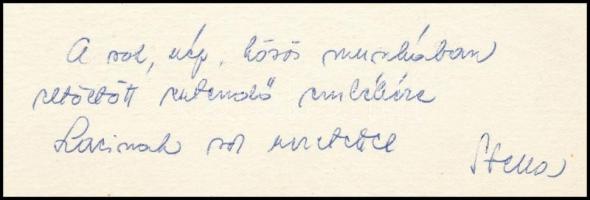 A sok, szép, közös munkában
eltöltött esztendő emlékére
Lacinak sok szeretettel
Stella